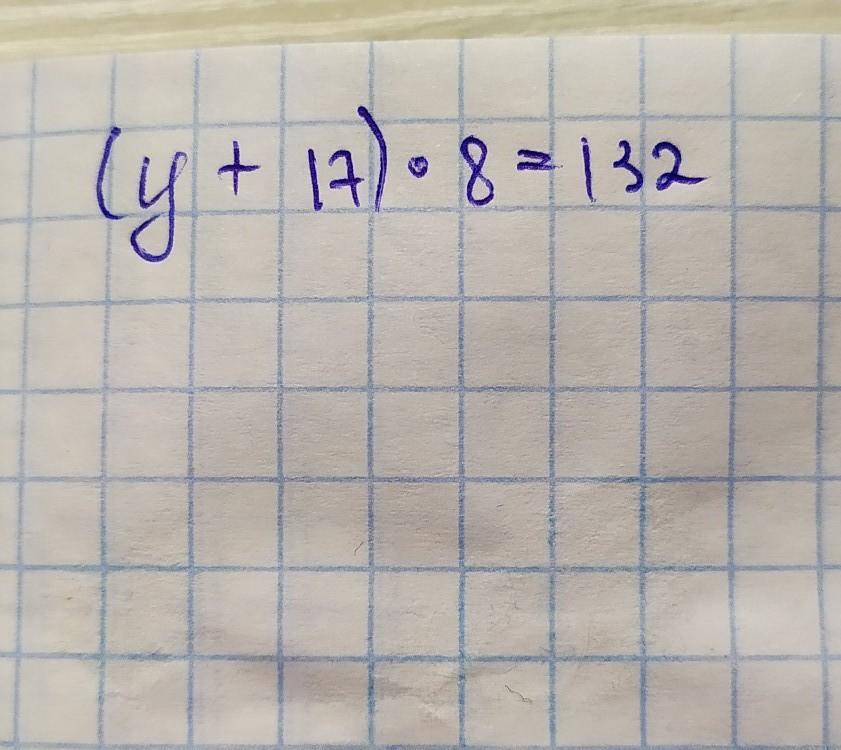 (y + 17) • 8 = 132